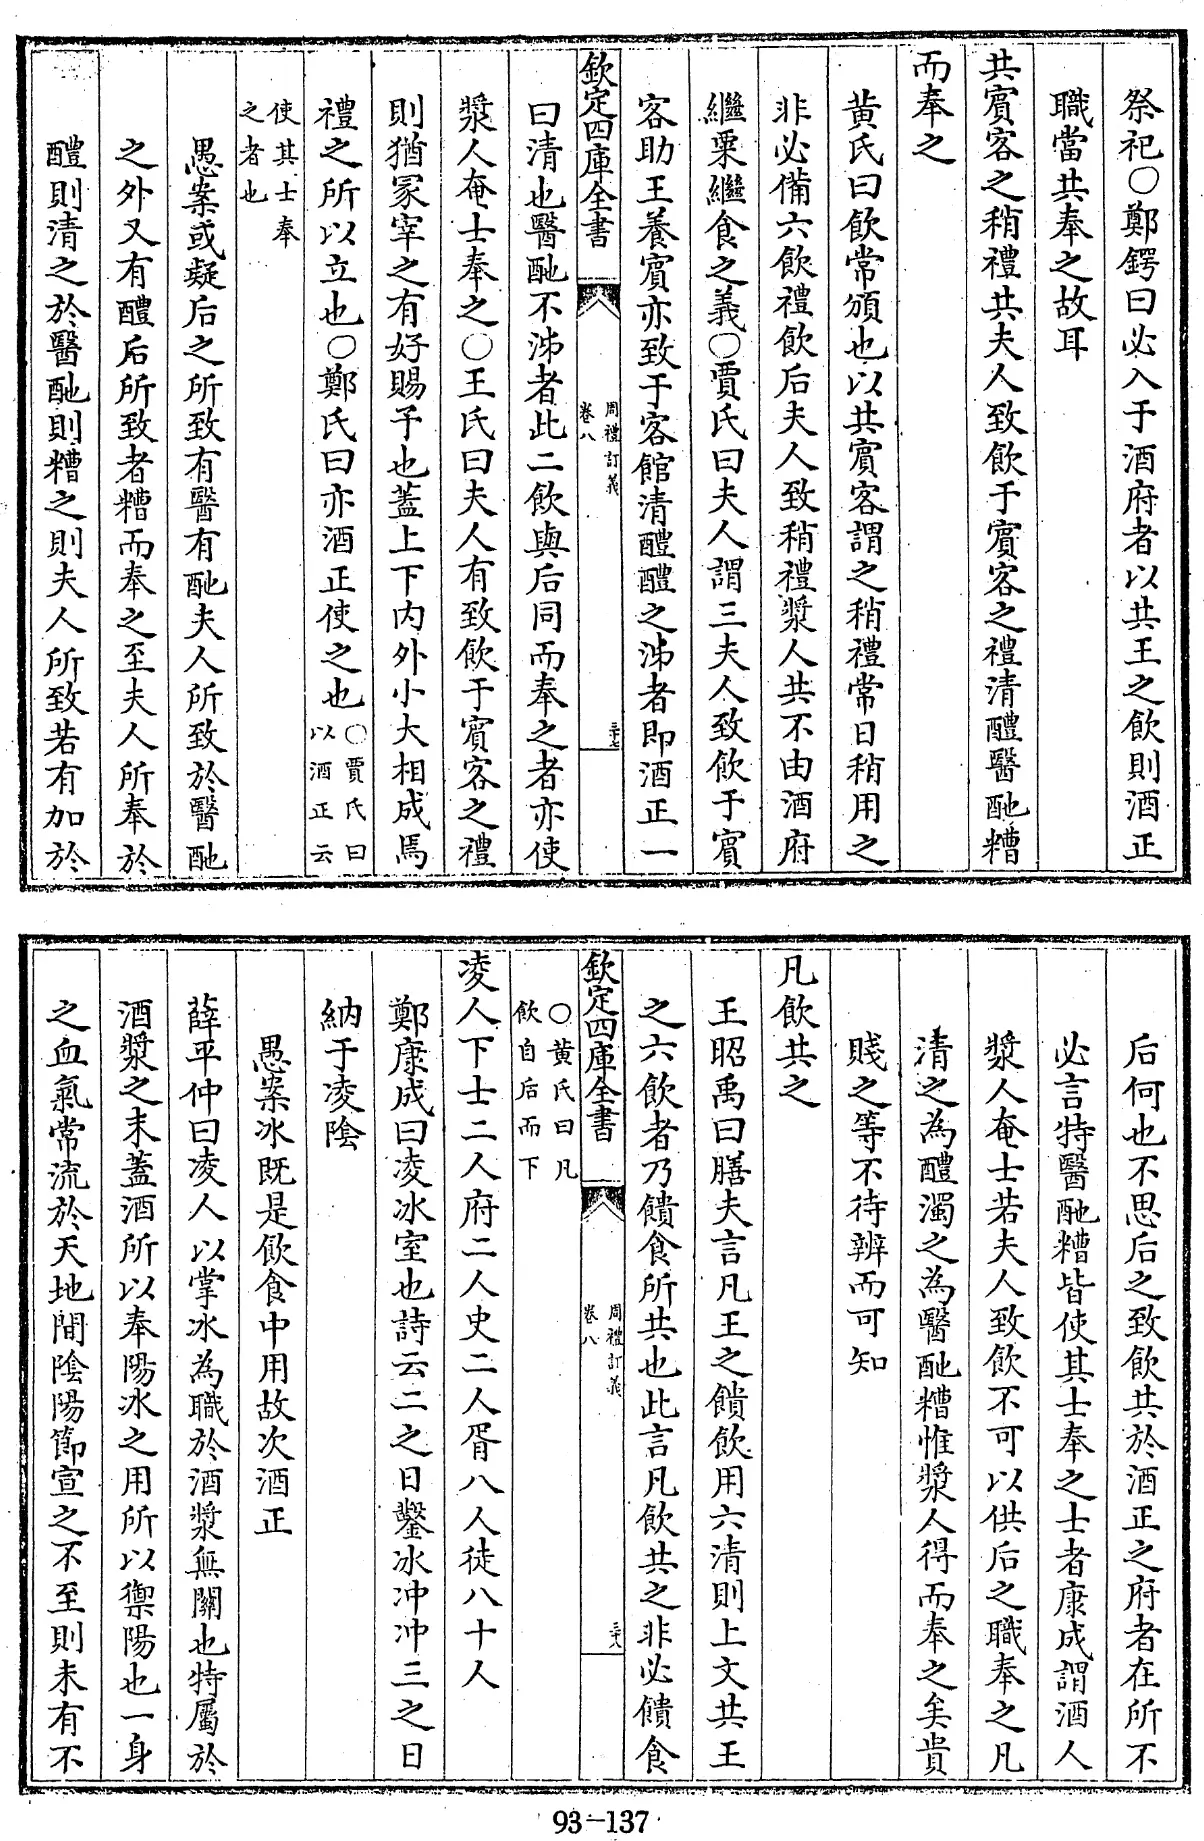 祭祀○鄭鍔曰必入于酒府者以共王之飲則酒正
職當共奉之故耳
共賓客之稍禮共夫人致飲于賓客之禮清醴醫酏糟
而奉之
黄氏曰飲常頒也以共賓客謂之稍禮常日稍用之
非必備六飲禮飲后夫人致稍禮漿人共不由酒府
繼粟繼食之義○賈氏曰夫人謂三夫人致飲于賓
客助王養賓亦致于客館清醴醴之泲者即酒正一
欽定四庫全書
周禮訂義
卷八
三十七
曰清也醫酏不泲者此二飲與后同而奉之者亦使
漿人奄士奉之○王氏曰夫人有致飲于賓客之禮
則猶冢宰之有好賜予也蓋上下内外小大相成焉
禮之所以立也○鄭氏曰亦酒正使之也○賈氏曰
以酒正云
使其士奉
之者也
愚案或疑后之所致有醫有酏夫人所致於醫酏
之外又有醴后所致者糟而奉之至夫人所奉於
醴則清之於醫酏則糟之則夫人所致若有加於
后何也不思后之致飲共於酒正之府者在所不
必言特醫酏糟皆使其士奉之士者康成謂酒人
漿人奄士若夫人致飲不可以供后之職奉之凡
清之為醴濁之為醫酏糟惟漿人得而奉之矣貴
賤之等不待辨而可知
凡飲共之
王昭禹曰膳夫言凡王之饋飲用六清則上文共王
之六飲者乃饋食所共也此言凡飲共之非必饋食
欽定四庫全書
周禮訂義
卷八
三十八
○黄氏曰凡
飲自后而下
凌人下士二人府二人史二人胥八人徒八十人
鄭康成曰凌冰室也詩云二之日鑿冰冲冲三之日
納于凌陰
愚案冰既是飲食中用故次酒正
薛平仲曰凌人以掌冰為職於酒漿無關也特屬於
酒漿之末蓋酒所以奉陽冰之用所以禦陽也一身
之血氣常流於天地間陰陽節宣之不至則未有不
93-137